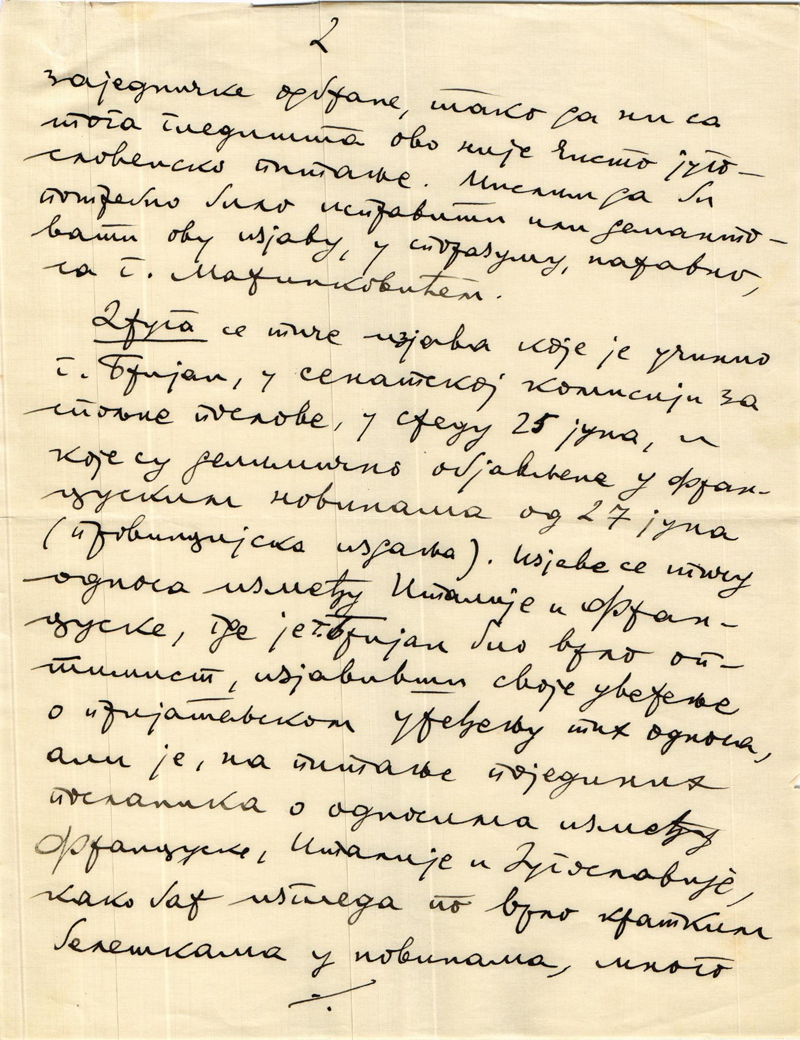 2
заједничке одбране, тако да ни са
тога гледишта ово није чисто југо-
словенско питање. Мислим да би
потребно било исправити или деманто-
вати ову изјаву, у споразуму, наравно,
са г. Маринковићем.
Друга се тиче изјава које је учинио
г. Бријан, у сенатској комисији за
спољне послове, у среду 25 јуна, и
које су делимично објављене у фран-
цуским новинама од 27 јуна
(провинцијска издања). Изјаве се тичу
односа између Италије и Фран-
цуске, где је г. Бријан био врло оп-
тимист, изјавивши своје уверење
о пријатељском уређењу тих односа,
али је, на питање појединих
посланика о односима између
Француске, Италије и Југославије,
како бар изгледа по врло кратким
белешкама у новинама, много
./.